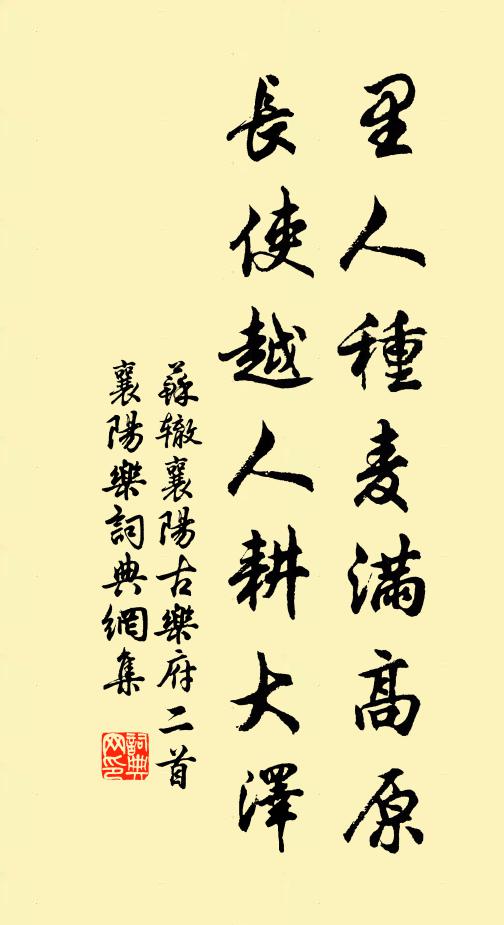 里人種麦滿高原
長使越人耕大澤
蘇辙襄陽古樂府二首
襄陽樂詞典網集
詞典
网印